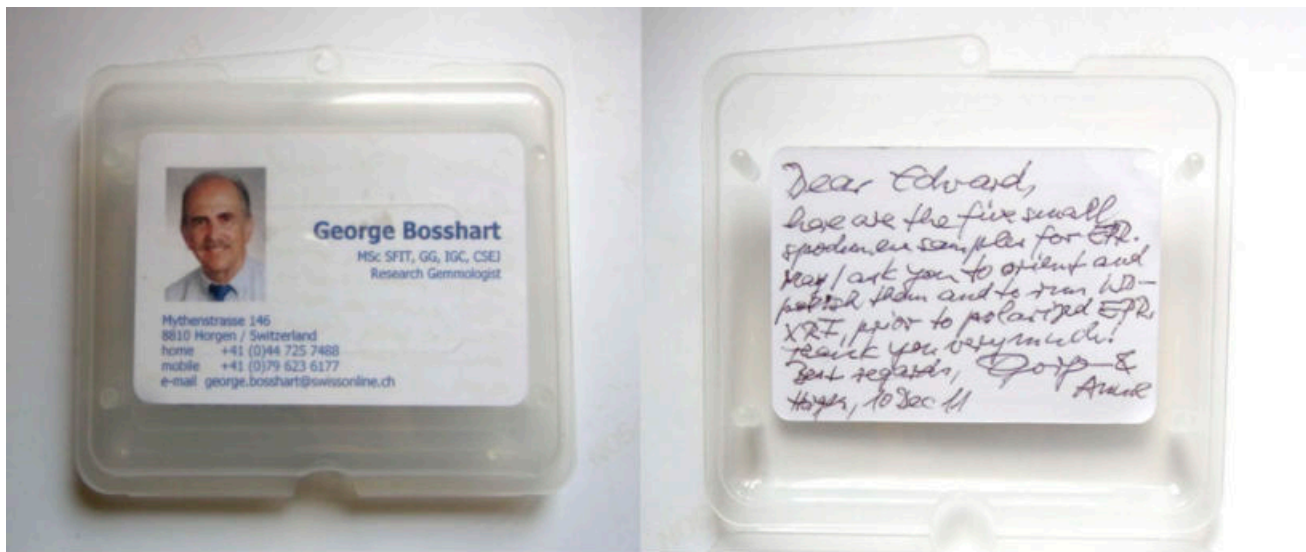 George Bosshart
MSc SFIT, GG, IGC, CSEJ
Research Gemmologist
Mythenstrasse 146
8810 Horgen / Switzerland
home +41 (0)44 725 7488
mobile +41 (0)79 623 6177
e-mail george.bosshart@swissonline.ch
Dear Edward,
here are the five small
spodumene samples for EPR.
May I ask you to orient and
polish them and to run WD-
XRF, prior to polarized EPR.
Thank you very much!
Best regards, &
10 Dec 11